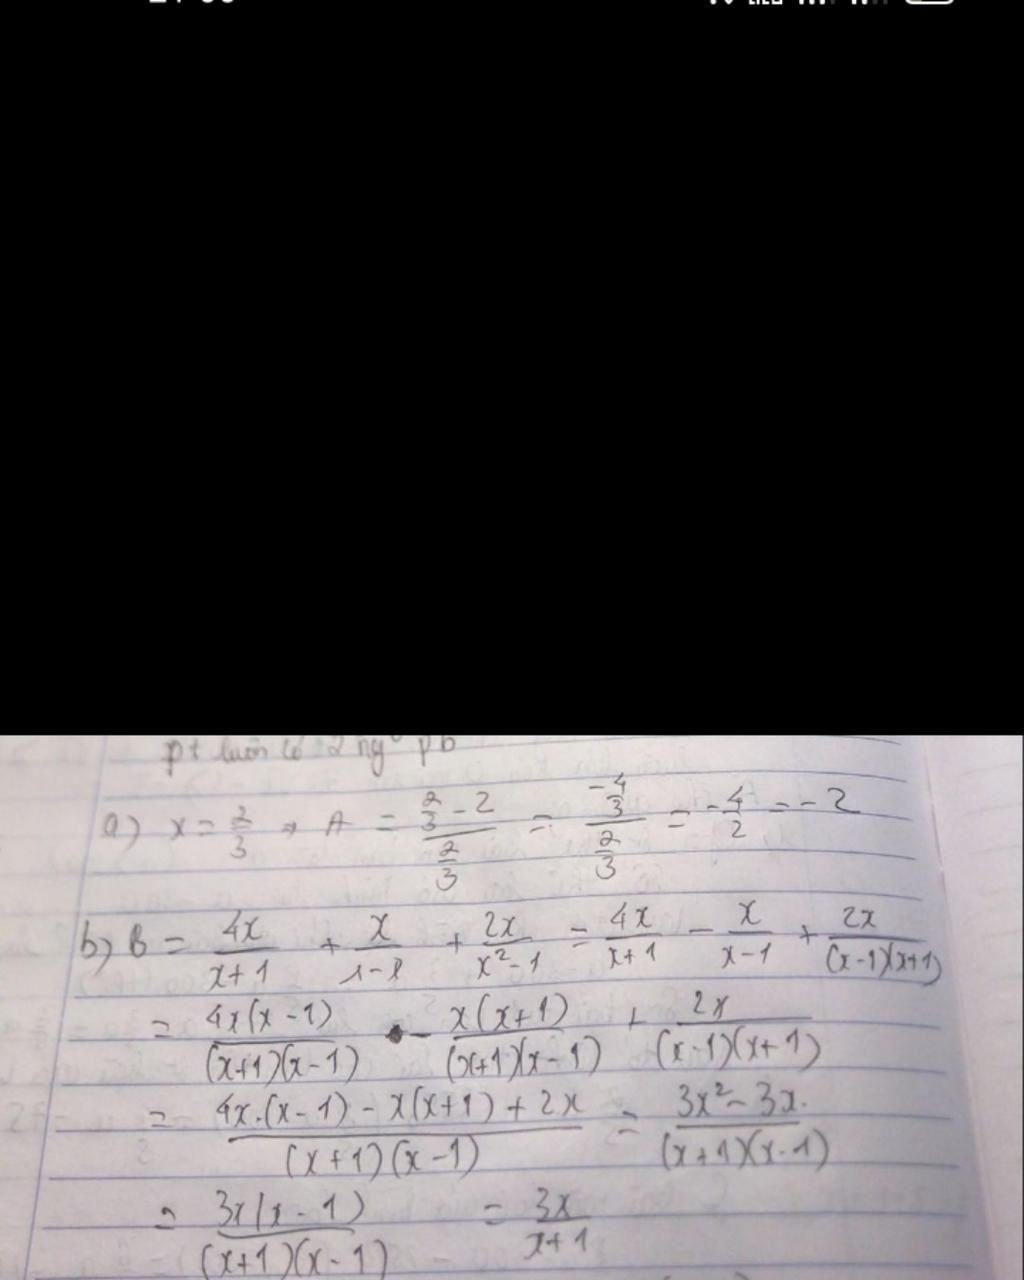 pt luôn có 2 ng° pb
a) x = 2/3 → A = (2/3 - 2)/(2/3) = (-4/3)/(2/3) = -4/2 = -2
b) B = 4x/(x+1) + x/(1-x) + 2x/(x²-1) = 4x/(x+1) - x/(x-1) + 2x/((x-1)(x+1))
= 4x(x-1)/((x+1)(x-1)) - x(x+1)/((x+1)(x-1)) + 2x/((x-1)(x+1))
= (4x.(x-1) - x(x+1) + 2x)/((x+1)(x-1)) = (3x² - 3x)/((x+1)(x-1))
= 3x(x-1)/((x+1)(x-1)) = 3x/(x+1)